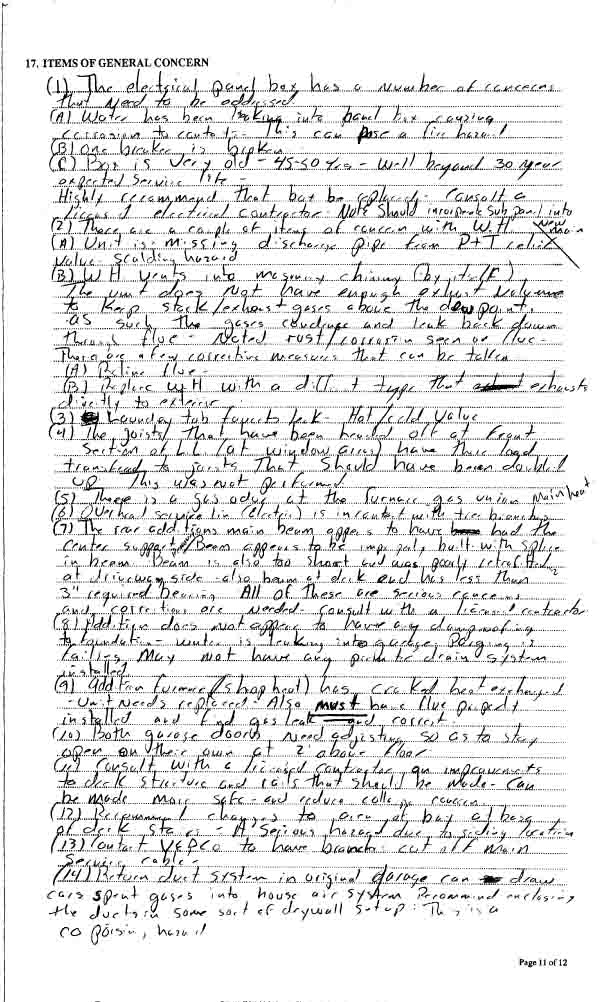 17. ITEMS OF GENERAL CONCERN
(1) The electrical panel box has a number of concerns
that need to be addressed.
(A) Water has been leaking into panel box causing
corrosion to This can pose a fire hazard
(B) One breaker is broken
(C) Box is very old - 45-50 yrs - well beyond 30 year
expected service life -
Highly recommend that box be replaced - Consult a
licensed electrical contractor - Note Should incorporate sub panel into
new main
(2) There are a couple of items of concern with W.H.
(A) Unit is missing discharge pipe from P+T relief
valve - scalding hazard
(B) WH vents into masonry chimny (by itself)
The unit does not have enough exhust volume
to keep stack/exhaust gases above the dew point.
as such the gases and leak back down
through flue - Noted rust/corrosion seen on flue -
There are a few corrective measures that can be taken
(A) Reline flue -
(B) Replace WH with a diff type that exhausts
directly to exterior
(3) Laundry tub faucets leak - Hot/cold valve
(4) The joists that have been headed off at front
section of L.L. (at window area) have there load
to joists that should have been doubled
up. This was not performed
(5) There is a gas odor at the furnace gas union main heat
(6) Overhead service line (electric) is in contact with tree branches
(7) The rear additions main beam appers to have had the
center support Beam appears to be built with splice
in beam. Beam is also too short and was poorly
at driveway side - also beam at deck end has less than
3" required bearing. All of these are serious concerns
and corrections are needed - consult with a licensed contractor
(8) Addition does not appear to have any dampproofing
to foundation - water is leaking into garage. Parging is
failing. May not have any drain system
installed
(9) Addition furnace (shop heat) has cracked heat exchanger
- Unit needs replaced - Also must have flue properly
installed and find gas leak and correct -
(10) Both garage doors need adjusting so as to stay
open on their own at 2' above floor
(11) Consult with a licensed contractor on improvements
to deck structure and rails that should be made - can
be made more safe - and reduce concern
(12) Recommend changes to area at bay at
of deck stairs - A serious hazard due to location
(13) Contact VEPCO to have branches cut off main
service cable -
(14) Return duct system in original garage can draw
cars spent gases into house air system Recommend enclosing
the ducts in some sort of drywall setup. This is a
CO poisin, hazard
Page 11 of 12